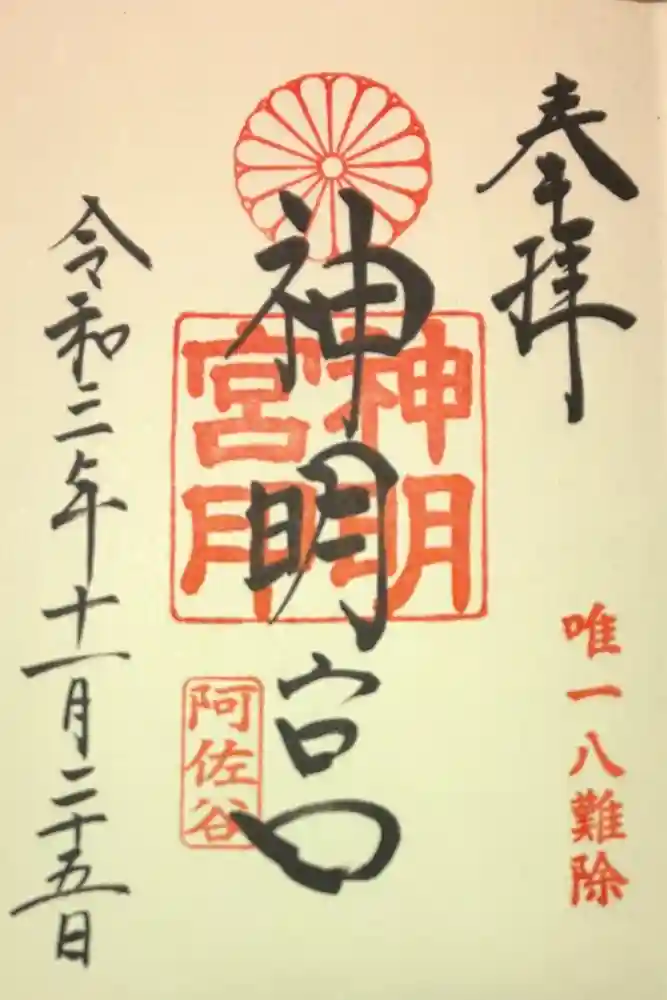 奉拝
唯一八難除
神明宮
神明
宮印
阿佐谷
令和三年十一月二十五日